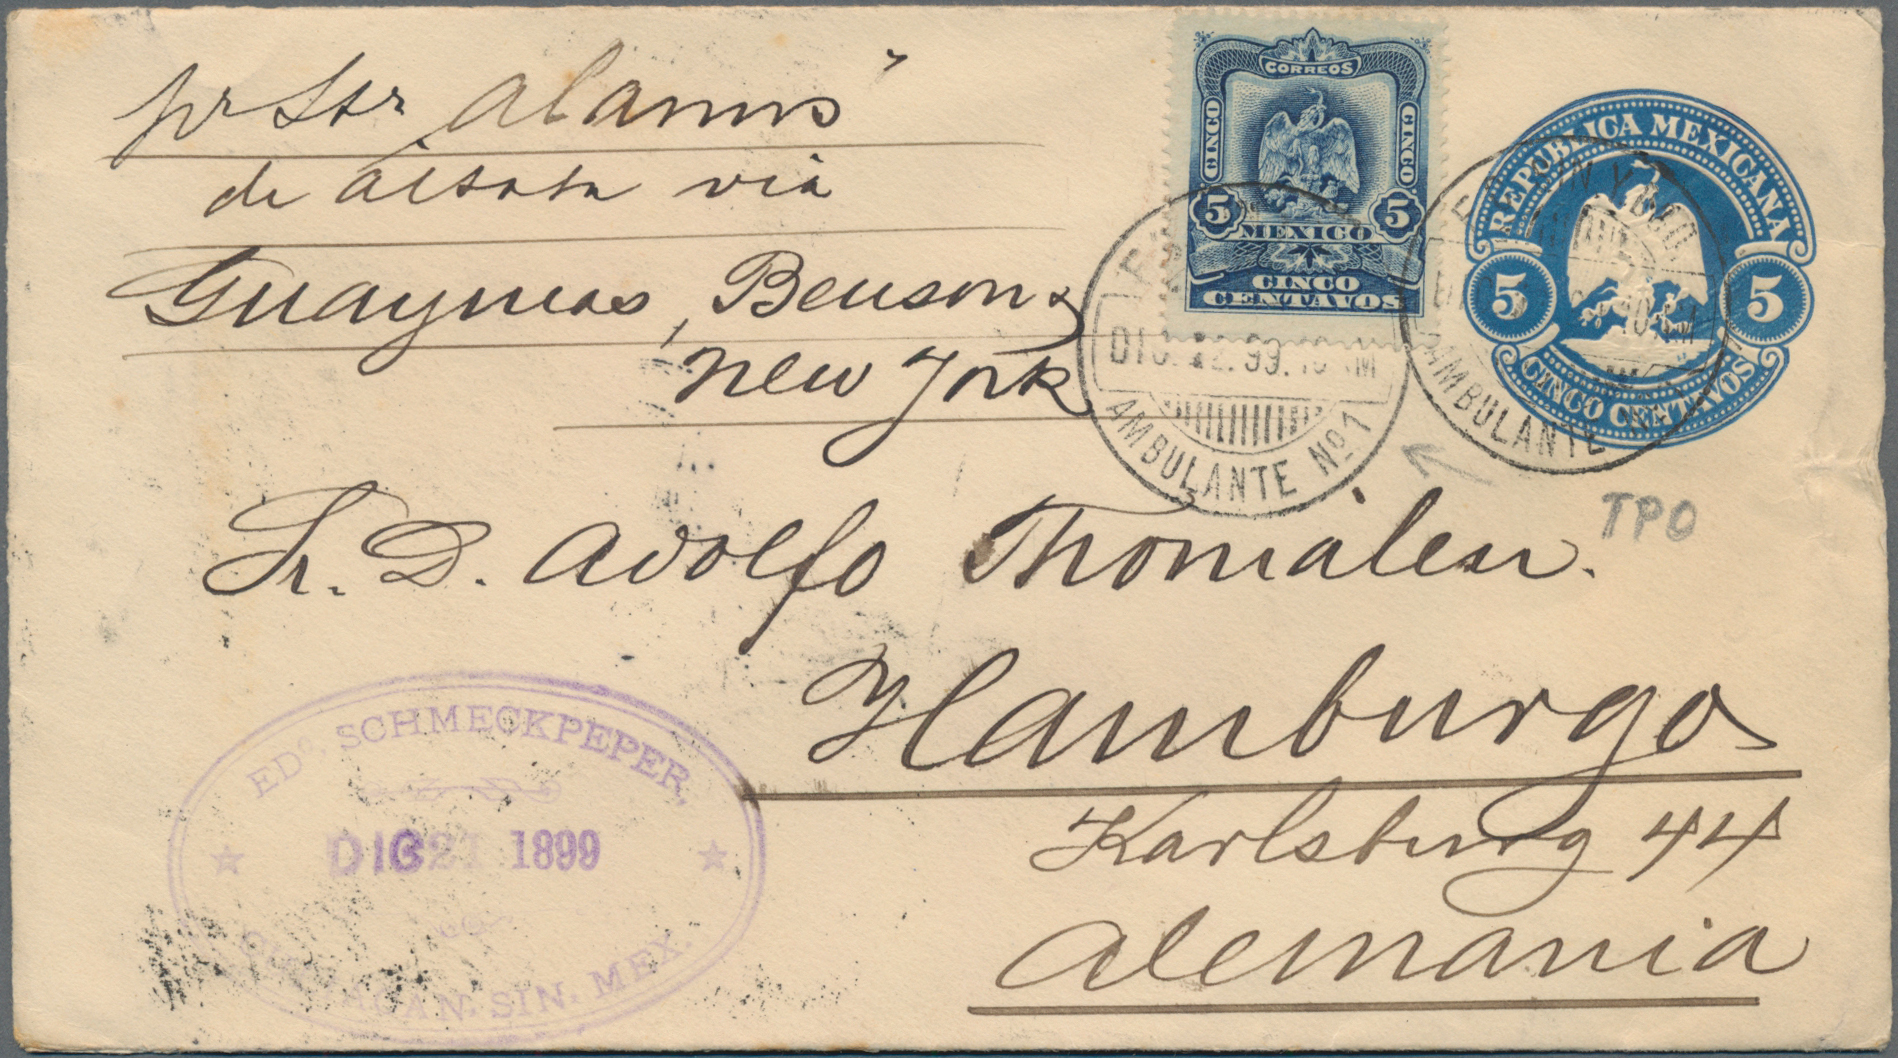 pr Str Alamos"
de Altata via
Guaymas, Benson &
New York
CORREOS
CINCO CINCO
5 5
MEXICO
CINCO
CENTAVOS
REPUBLICA MEXICANA
5 5
CINCO CENTAVOS
DIC. 12. 99. 10 AM
AMBULANTE Nº 1
AMBULANTE
TPO
Sr. D. Adolfo Thomálen.
Hamburgo
Karlsburg 44
Alemania
EDO. SCHMECKPEPER,
DIC 1899
CULIACAN. SIN. MEX.